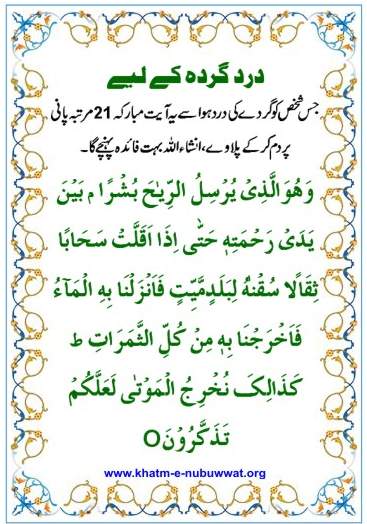 درد گردہ کے لیے
جس شخص کو گردے کی درد ہوا سے یہ آیت مبارکہ 21 مرتبہ پانی
پر دم کر کے پلاوے، انشاءاللہ بہت فائدہ پہنچے گا۔
وَهُوَ الَّذِیْ یُرْسِلُ الرِّیٰحَ بُشْرًا ۢ بَیْنَ
یَدَیْ رَحْمَتِهٖ حَتّٰی اِذَا اَقَلَّتْ سَحَابًا
ثِقَالًا سُقْنٰهُ لِبَلَدٍ مَّیِّتٍ فَاَنْزَلْنَا بِهِ الْمَآءَ
فَاَخْرَجْنَا بِهٖ مِنْ کُلِّ الثَّمَرَاتِ ط
کَذَالِکَ نُخْرِجُ الْمَوْتٰی لَعَلَّکُمْ
تَذَکَّرُوْنَO
www.khatm-e-nubuwwat.org